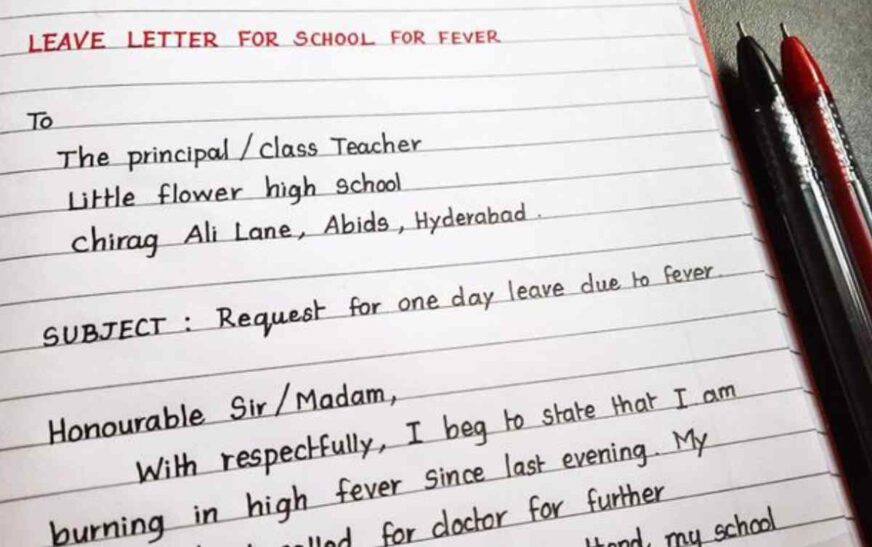 LEAVE LETTER FOR SCHOOL FOR FEVER
To
The principal / class Teacher
Little flower high school
chirag Ali Lane, Abids, Hyderabad.
SUBJECT : Request for one day leave due to fever.
Honourable Sir / Madam,
With respectfully, I beg to state that I am
burning in high fever since last evening. My
for doctor for further
my school